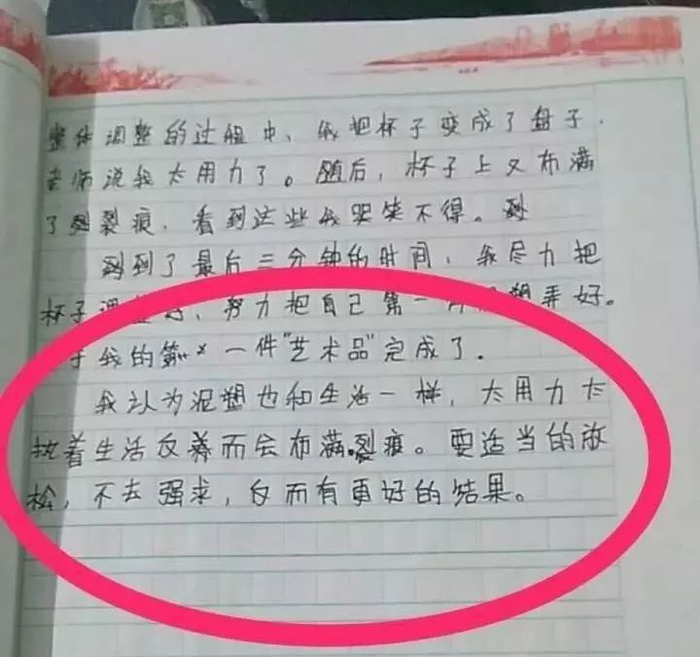 整体调整的过程中、我把杯子变成了盘子.
老师说我太用力了。随后，杯子上又布满
了裂痕，看到这些我哭笑不得。
到了最后三分钟的时间，我尽力把
杯子调 好、努力把自己第一 塑弄好。
于我的第一件"艺术品"完成了.
我认为泥塑也和生活一样，太用力太
执着生活反而会布满裂痕。要适当的放
松，不去强求，反而有更好的结果。